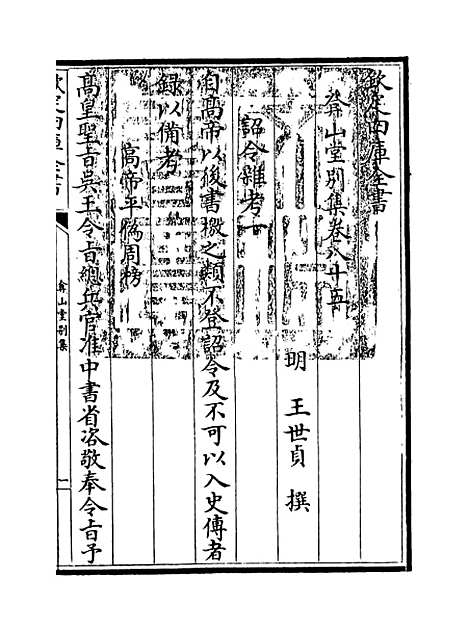 欽定四庫全書
弇山堂別集卷八十五
明 王世貞 撰
詔令雜考一
自高帝以後書檄之類不登詔令及不可以入史傳者
錄以備考
高帝平偽周榜
高皇聖旨吳王令旨總兵官准中書省咨敬奉令旨予
欽定四庫全書
弇山堂別集
一